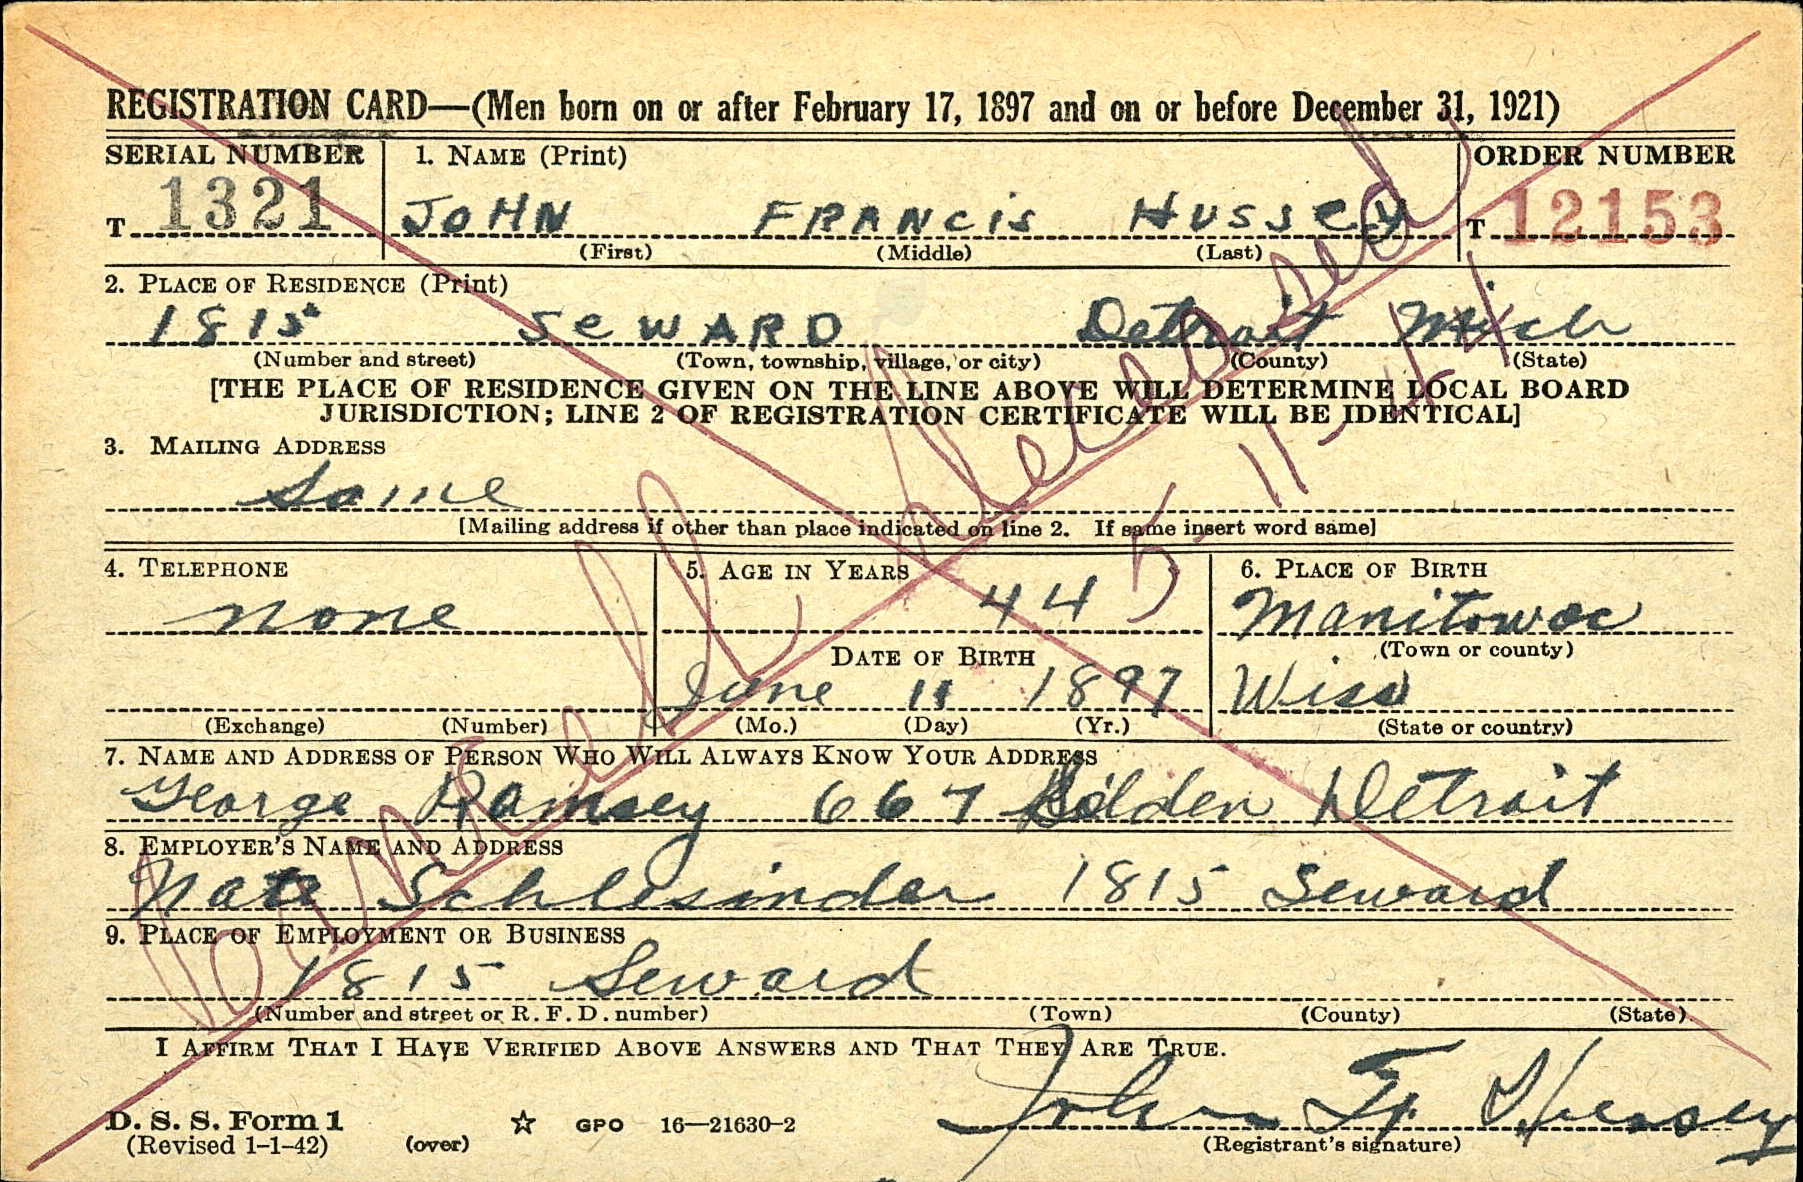 REGISTRATION CARD—(Men born on or after February 17, 1897 and on or before December 31, 1921)
SERIAL NUMBER 1. NAME (Print) ORDER NUMBER
T 1321 JOHN FRANCIS HUSSEY T 12153
(First) (Middle) (Last)
2. PLACE OF RESIDENCE (Print)
1815 SEWARD Detroit Mich
(Number and street) (Town, township, village, or city) (County) (State)
[THE PLACE OF RESIDENCE GIVEN ON THE LINE ABOVE WILL DETERMINE LOCAL BOARD
JURISDICTION; LINE 2 OF REGISTRATION CERTIFICATE WILL BE IDENTICAL]
3. MAILING ADDRESS
Same
[Mailing address if other than place indicated on line 2. If same insert word same]
4. TELEPHONE 5. AGE IN YEARS 6. PLACE OF BIRTH
none 44 Manitowoc
DATE OF BIRTH (Town or county)
June 11 1897 Wiss
(Exchange) (Number) (Mo.) (Day) (Yr.) (State or country)
7. NAME AND ADDRESS OF PERSON WHO WILL ALWAYS KNOW YOUR ADDRESS
George Ramsey 667 Detroit
8. EMPLOYER'S NAME AND ADDRESS
Nate Schlesinder 1815 Seward
9. PLACE OF EMPLOYMENT OR BUSINESS
1815 Seward
(Number and street or R. F. D. number) (Town) (County) (State)
I AFFIRM THAT I HAVE VERIFIED ABOVE ANSWERS AND THAT THEY ARE TRUE.
John F. Hussey
D. S. S. Form 1 ☆ GPO 16—21630-2
(Revised 1-1-42) (over) (Registrant's signature)
Cancelled Deceased
5-11-44